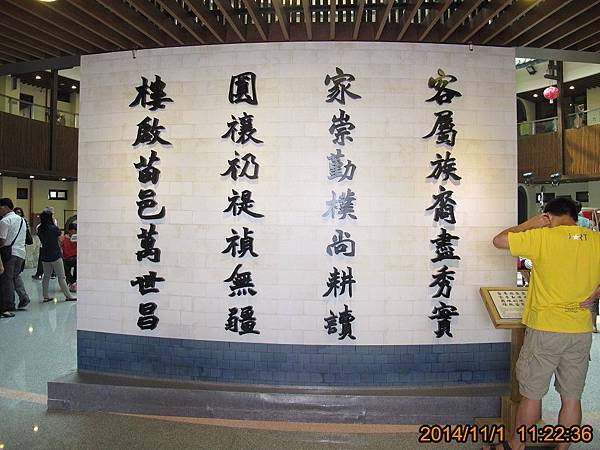 客屬族裔盡秀實
家崇勤樸尚耕讀
圓禳礽禔禎無疆
樓啟苗邑萬世昌
2014/11/1 11:22:36